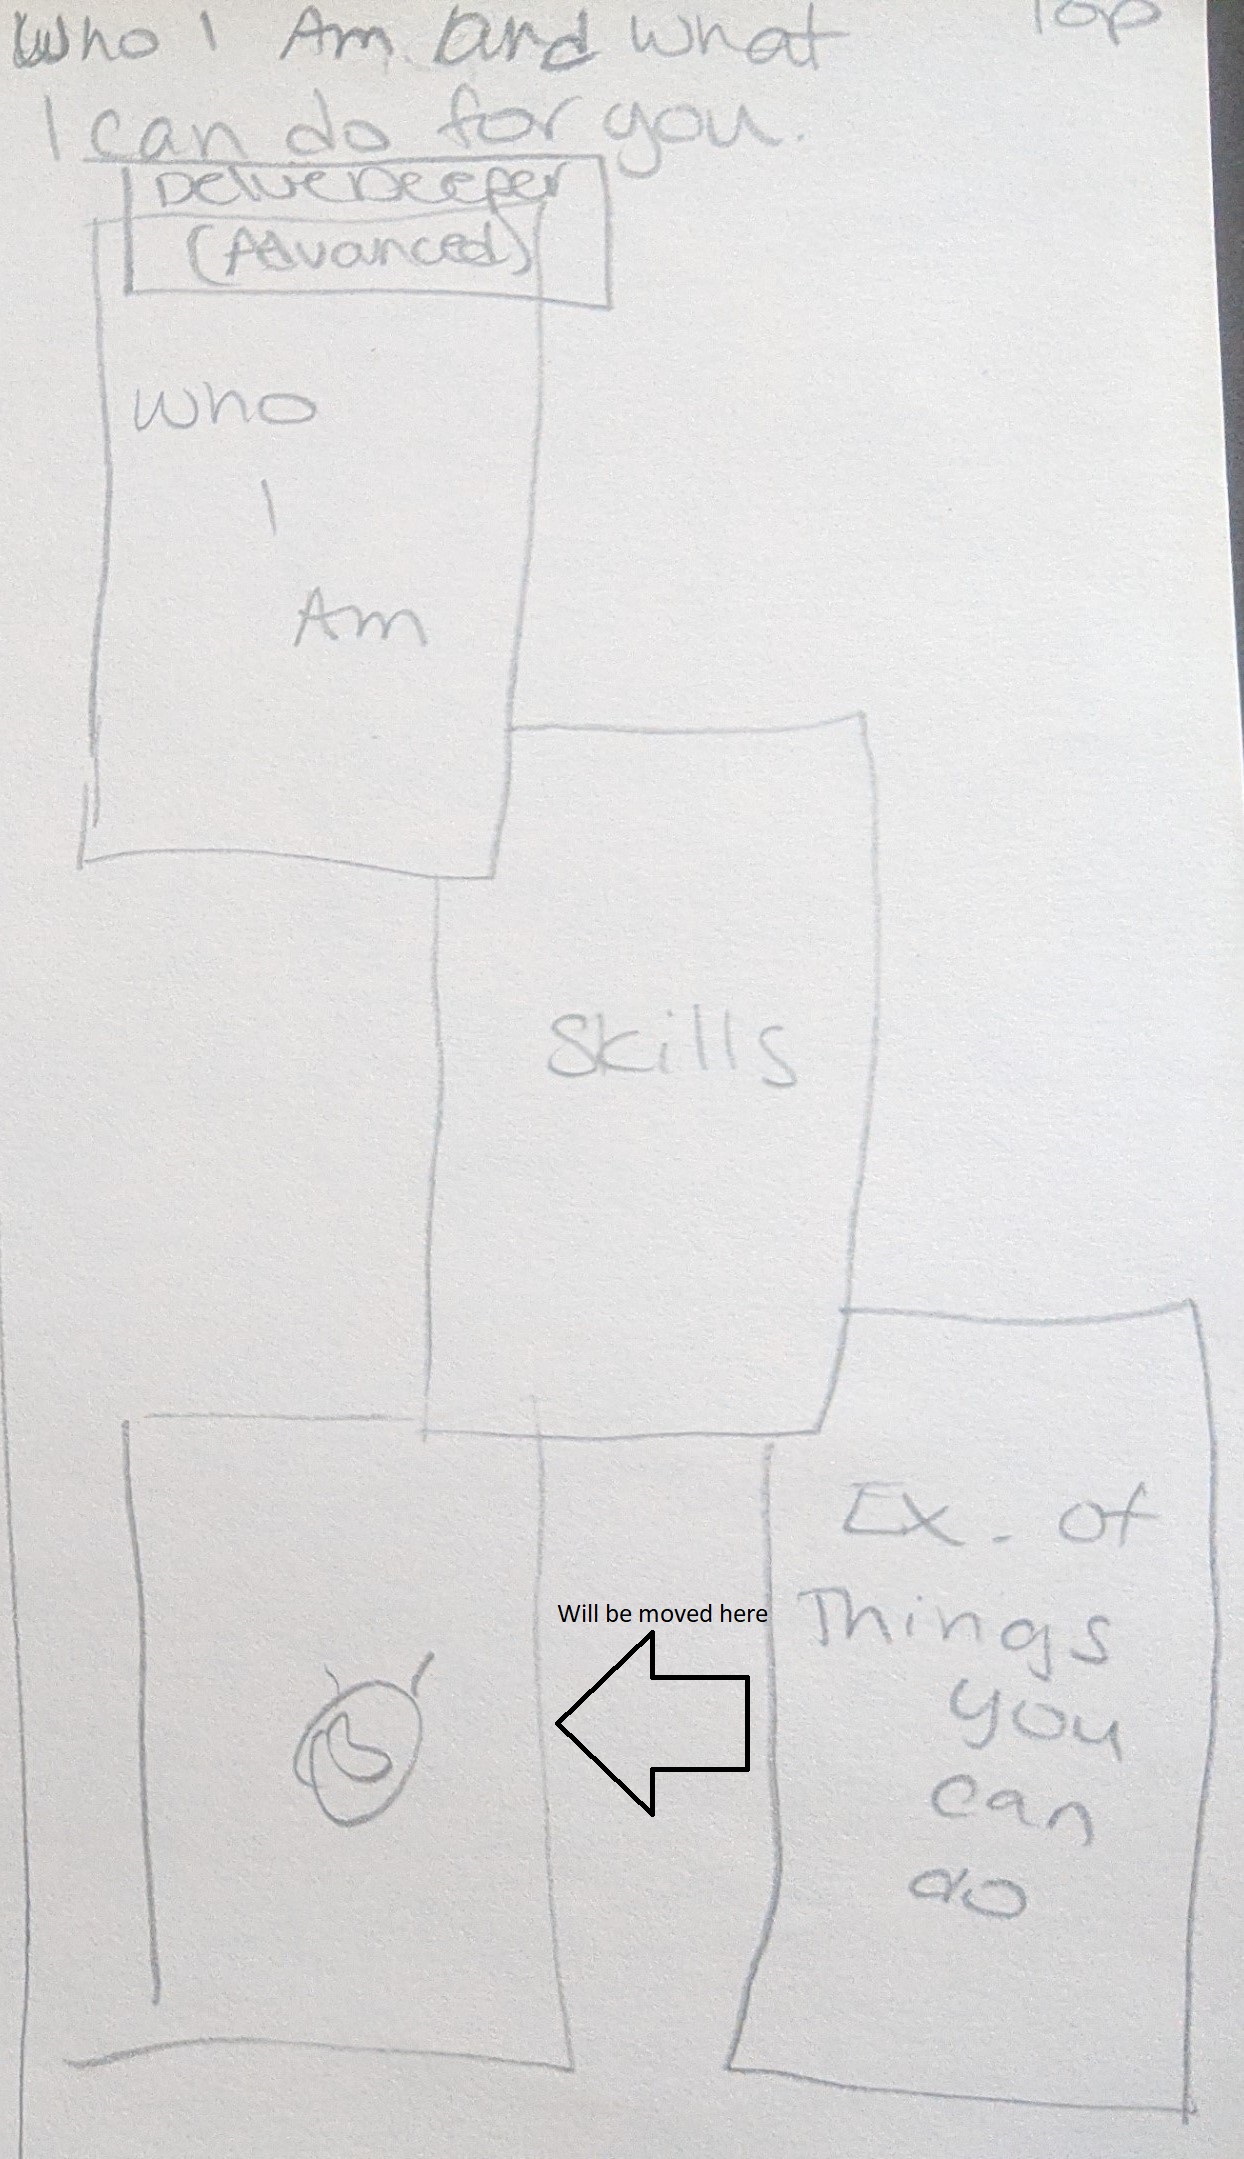 Who I Am and what
Top
I can do for you.
Delve Deeper
(Advanced)
Who
I
Am
Skills
Ex. of
Things
you
can
do
Will be moved here